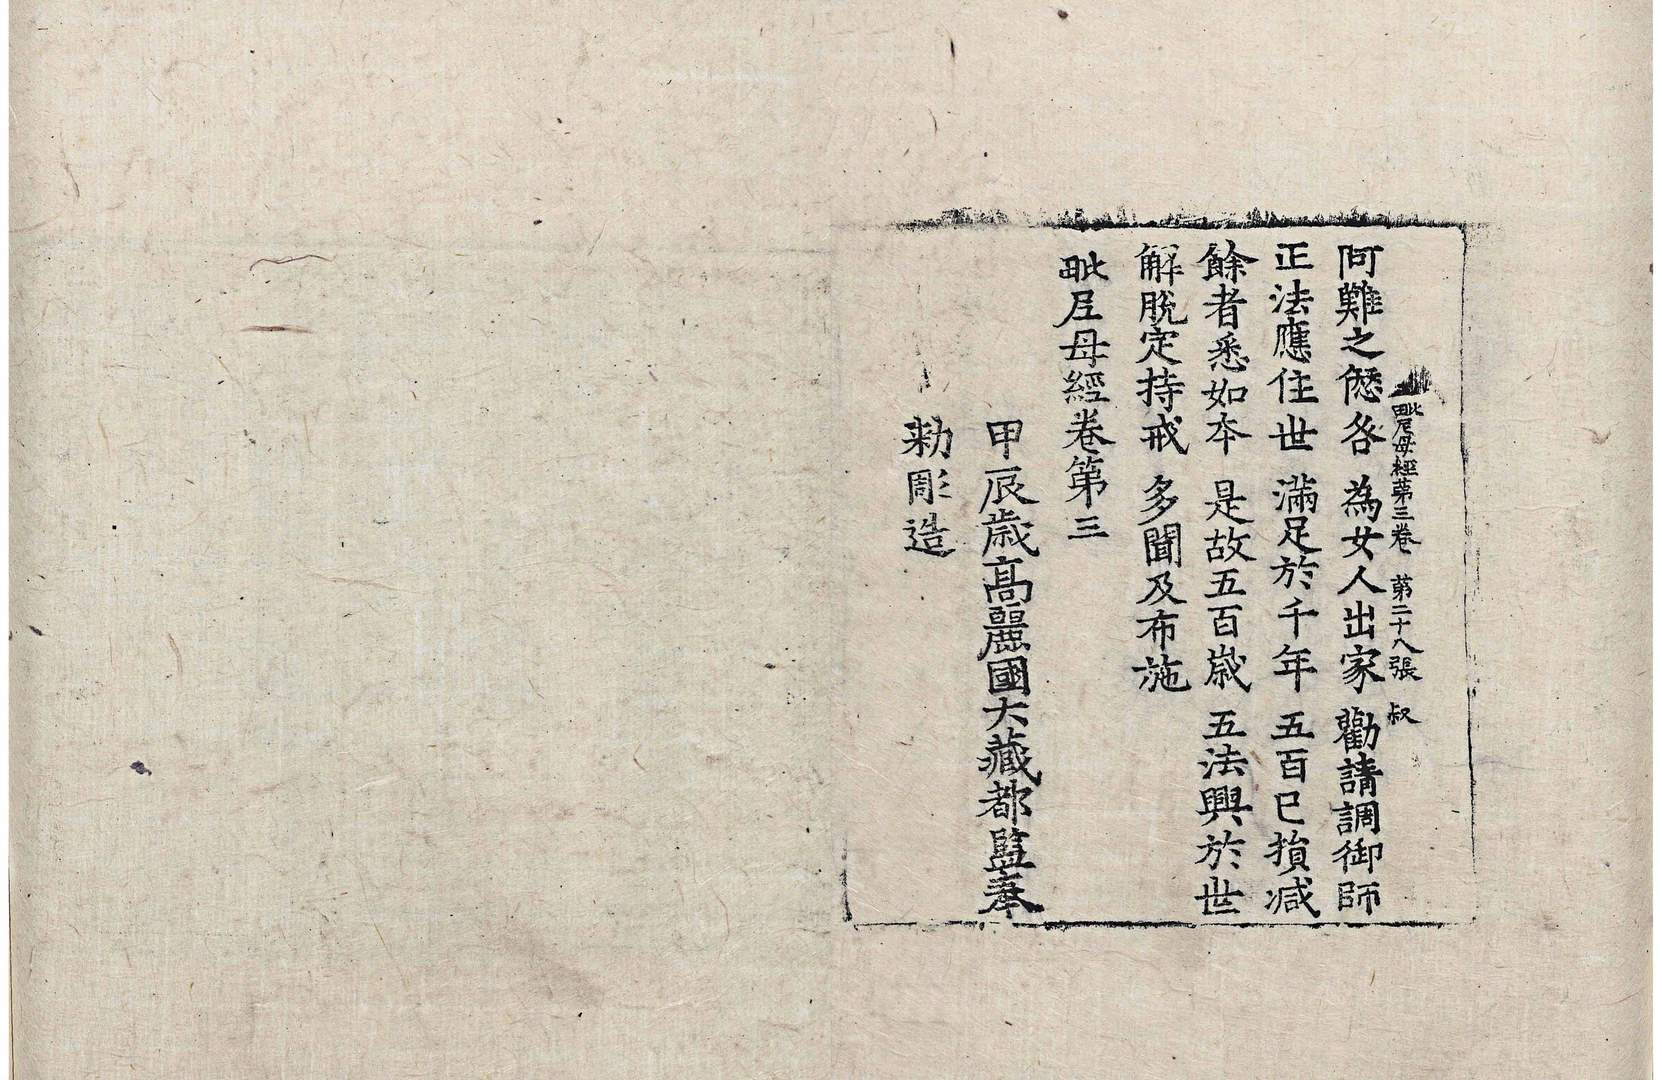 毗尼母經第三卷 第二十八張 叔
阿難之愆咎 為女人出家 勸請調御師
正法應住世 滿足於千年 五百已損減
餘者悉如本 是故五百歲 五法興於世
解脫定持戒 多聞及布施
毗尼母經卷第三
甲辰歲高麗國大藏都監奉
勅彫造